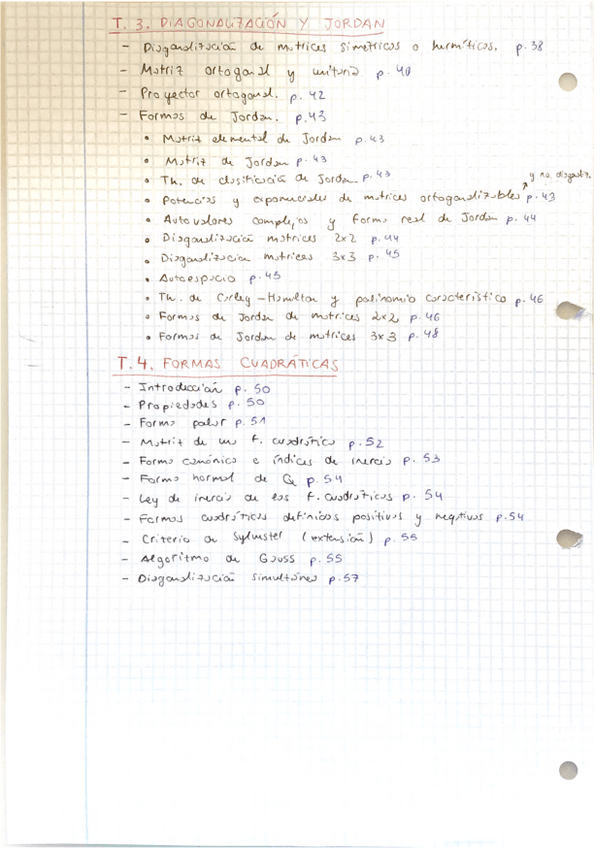 T. 3. DIAGONALIZACIÓN Y JORDAN
- Diagonalización de matrices simétricas o hermíticas. p. 38
- Matriz ortogonal y unitaria p. 40
- Proyector ortogonal. p. 42
- Formas de Jordan. p.43
• Matriz elemental de Jordan p.43
• Matriz de Jordan p. 43
• Th. de clasificación de Jordan p.43
y no diagonaliz.
• Potencias y exponenciales de matrices ortogonalizables p.43
• Autovalores complejos y forma real de Jordan p. 44
• Diagonalización matrices 2x2 p. 44
• Diagonalización matrices 3x3 p. 45
• Autoespacio p.45
• Th. de Cayley-Hamilton y polinomio característico p.46
• Formas de Jordan de matrices 2x2 p. 46
• Formas de Jordan de matrices 3x3 p. 48
T. 4. FORMAS CUADRÁTICAS
- Introducción p. 50
- Propiedades p. 50
- Forma polar p. 51
- Matriz de una f. cuadrática p. 52
- Forma canónica e índices de inercia p. 53
- Forma normal de Q p. 54
- Ley de inercia de las f. cuadráticas p. 54
- Formas cuadráticas definidas positivas y negativas p.54
- Criterio de Sylvester (extensión) p. 55
- Algoritmo de Gauss p. 55
- Diagonalización simultánea p.57